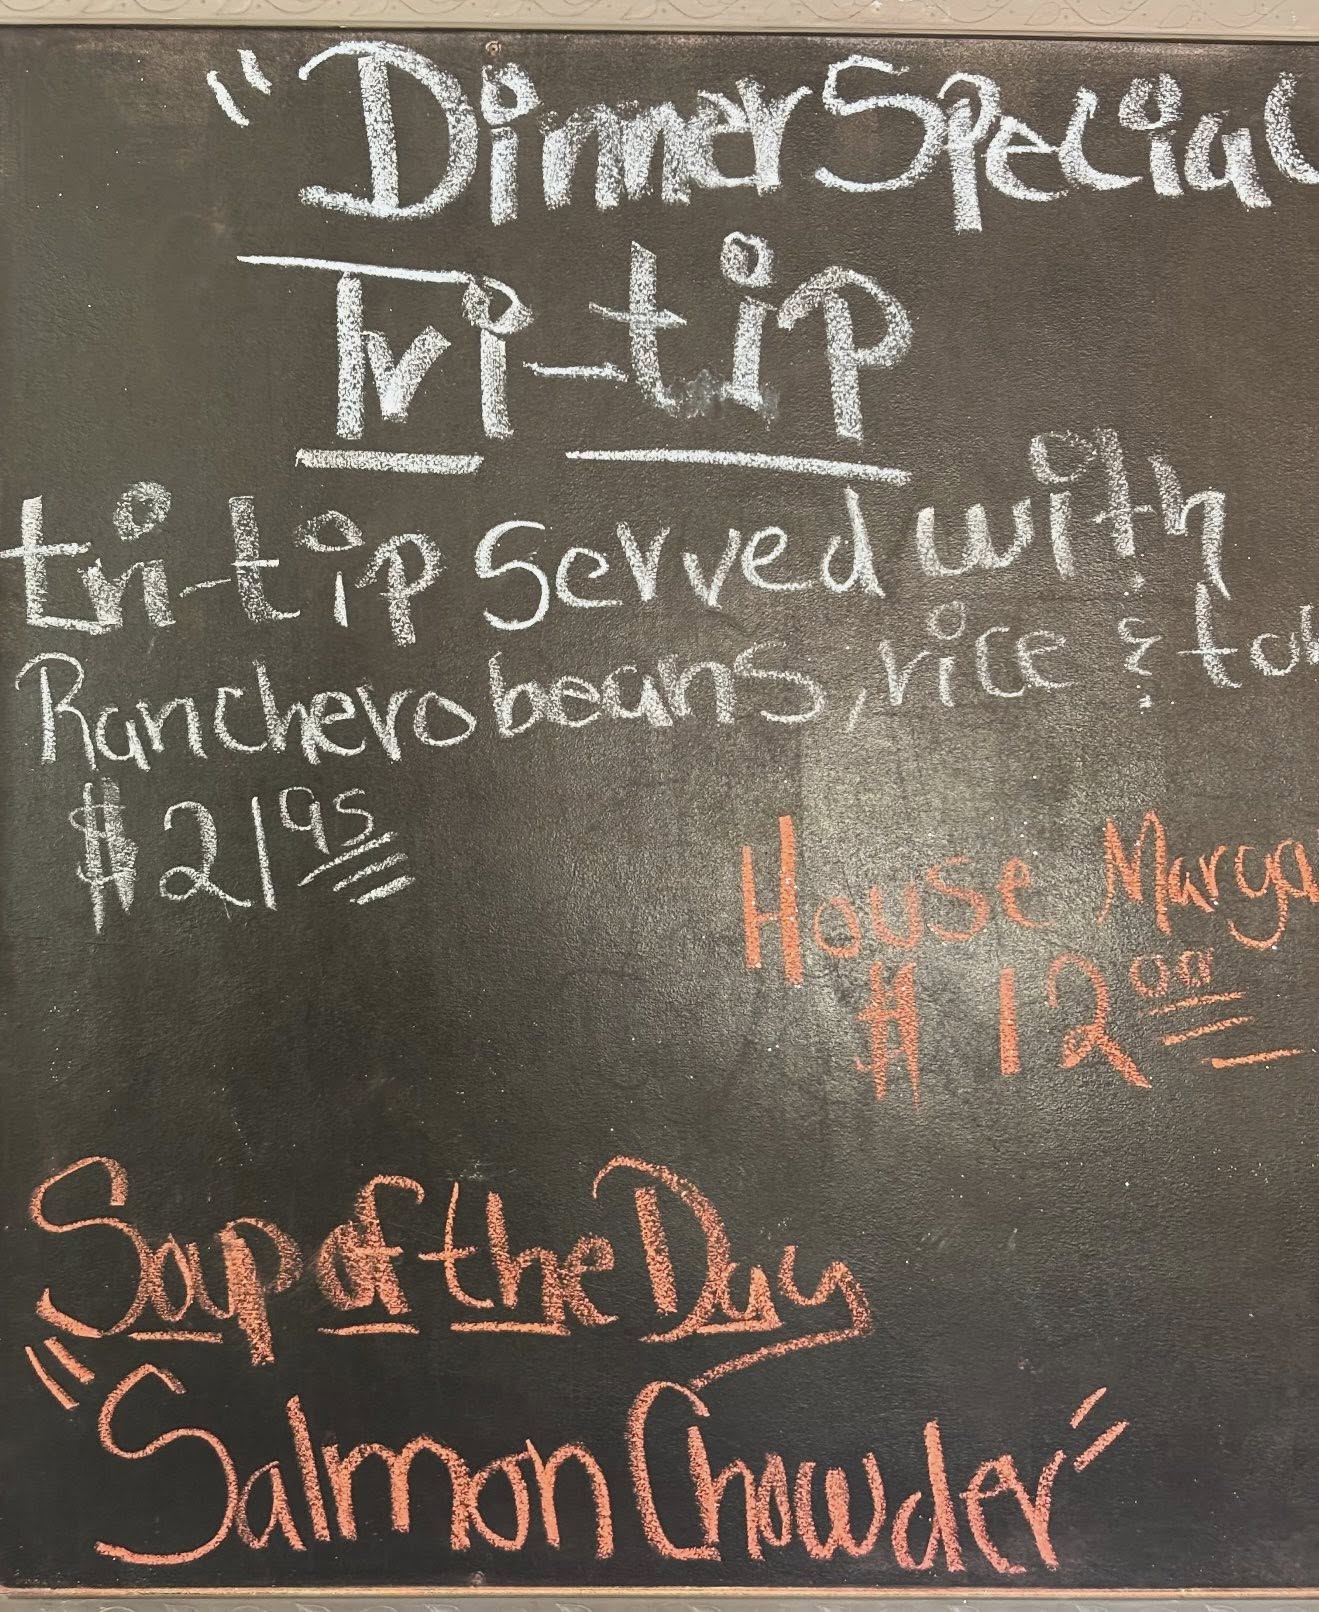 "Dinner Special
Tri-tip
tri-tip Served with
Ranchero beans, rice &
$21.95
House
$12.00
Soup of the Day
"Salmon Chowder"